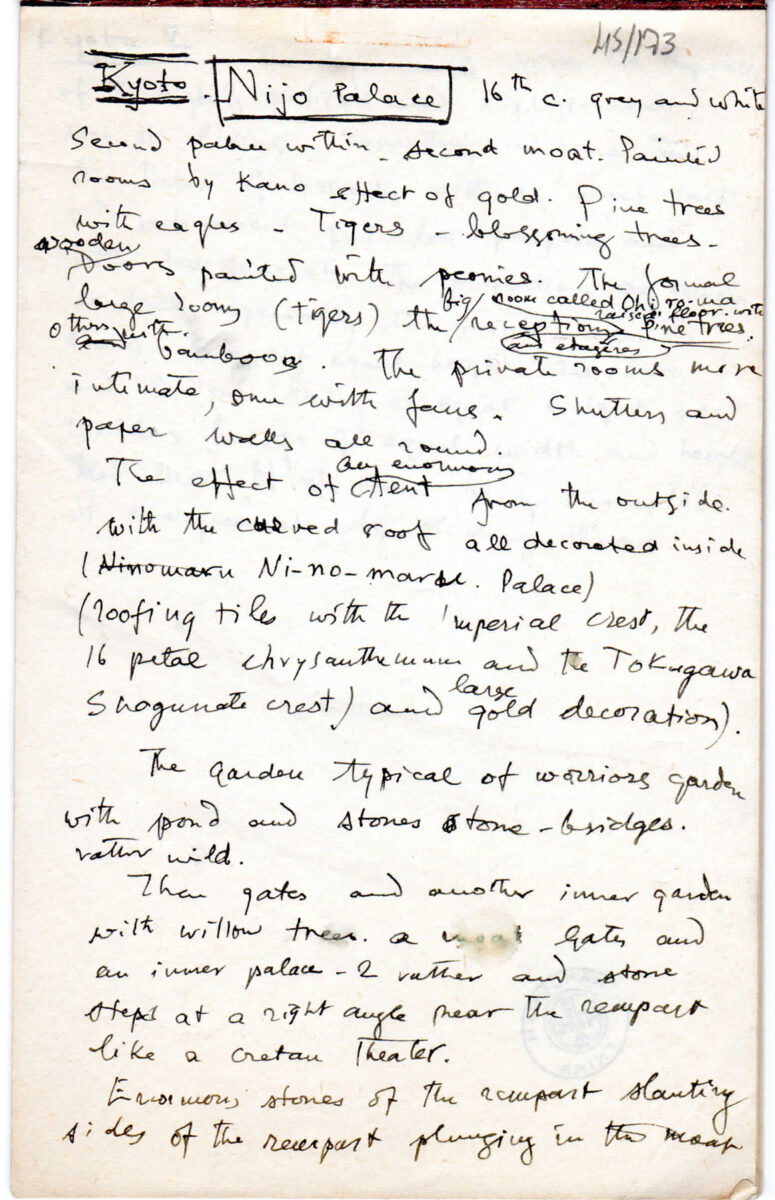 45/173
Kyoto. Nijo Palace 16th c. grey and white
Second palace within - second moat. Painted
rooms by Kano effect of gold. Pine trees
with eagles - Tigers - blossoming trees -
wooden
Doors painted with peonies. The formal
big room called Ohiro-ma
raised floor. with
large rooms (tigers) the receptions pine trees.
others with and etagères
bamboos. The private rooms more
intimate, one with fans. Shutters and
paper walls all round.
any enormous
The effect of tent from the outside.
with the curved roof all decorated inside
(Ninomaru Ni-no-maru. Palace)
(roofing tiles with the imperial crest, the
16 petal chrysanthemum and the Tokugawa
large
Shogunate crest) and gold decoration).
The garden typical of worriors garden
with pond and stones stone-bridges.
rather wild.
Then gates and another inner garden
with willow trees. a moat Gates and
an inner palace - 2 rather and stone
steps at a right angle near the rempart
like a cretan Theater.
Enormous stones of the rempart slanting
sides of the rempart plunging in the moat